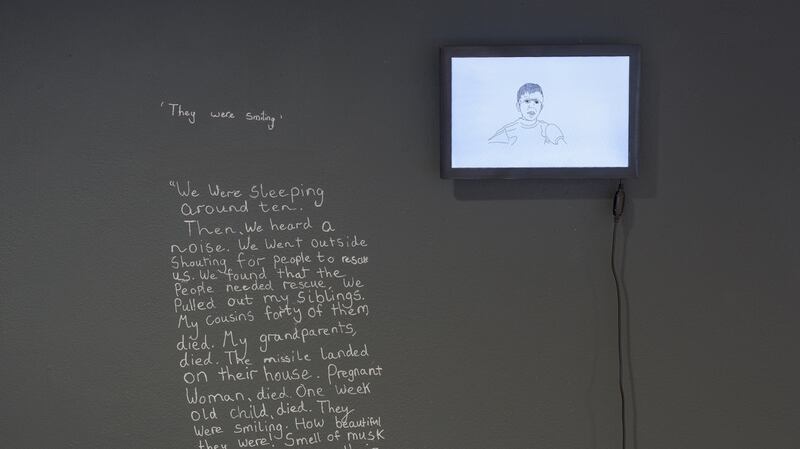 'They were smiling'
"We Were Sleeping
around ten.
Then, We heard a
noise. We went outside
Shouting for people to rescue
us. We found that the
People needed rescue, We
Pulled out my siblings.
My cousins forty of them
died. My grandparents,
died. The missile landed
on their house. Pregnant
Woman, died. One week
old child, died. They
were smiling. How beautiful
they were! Smell of musk